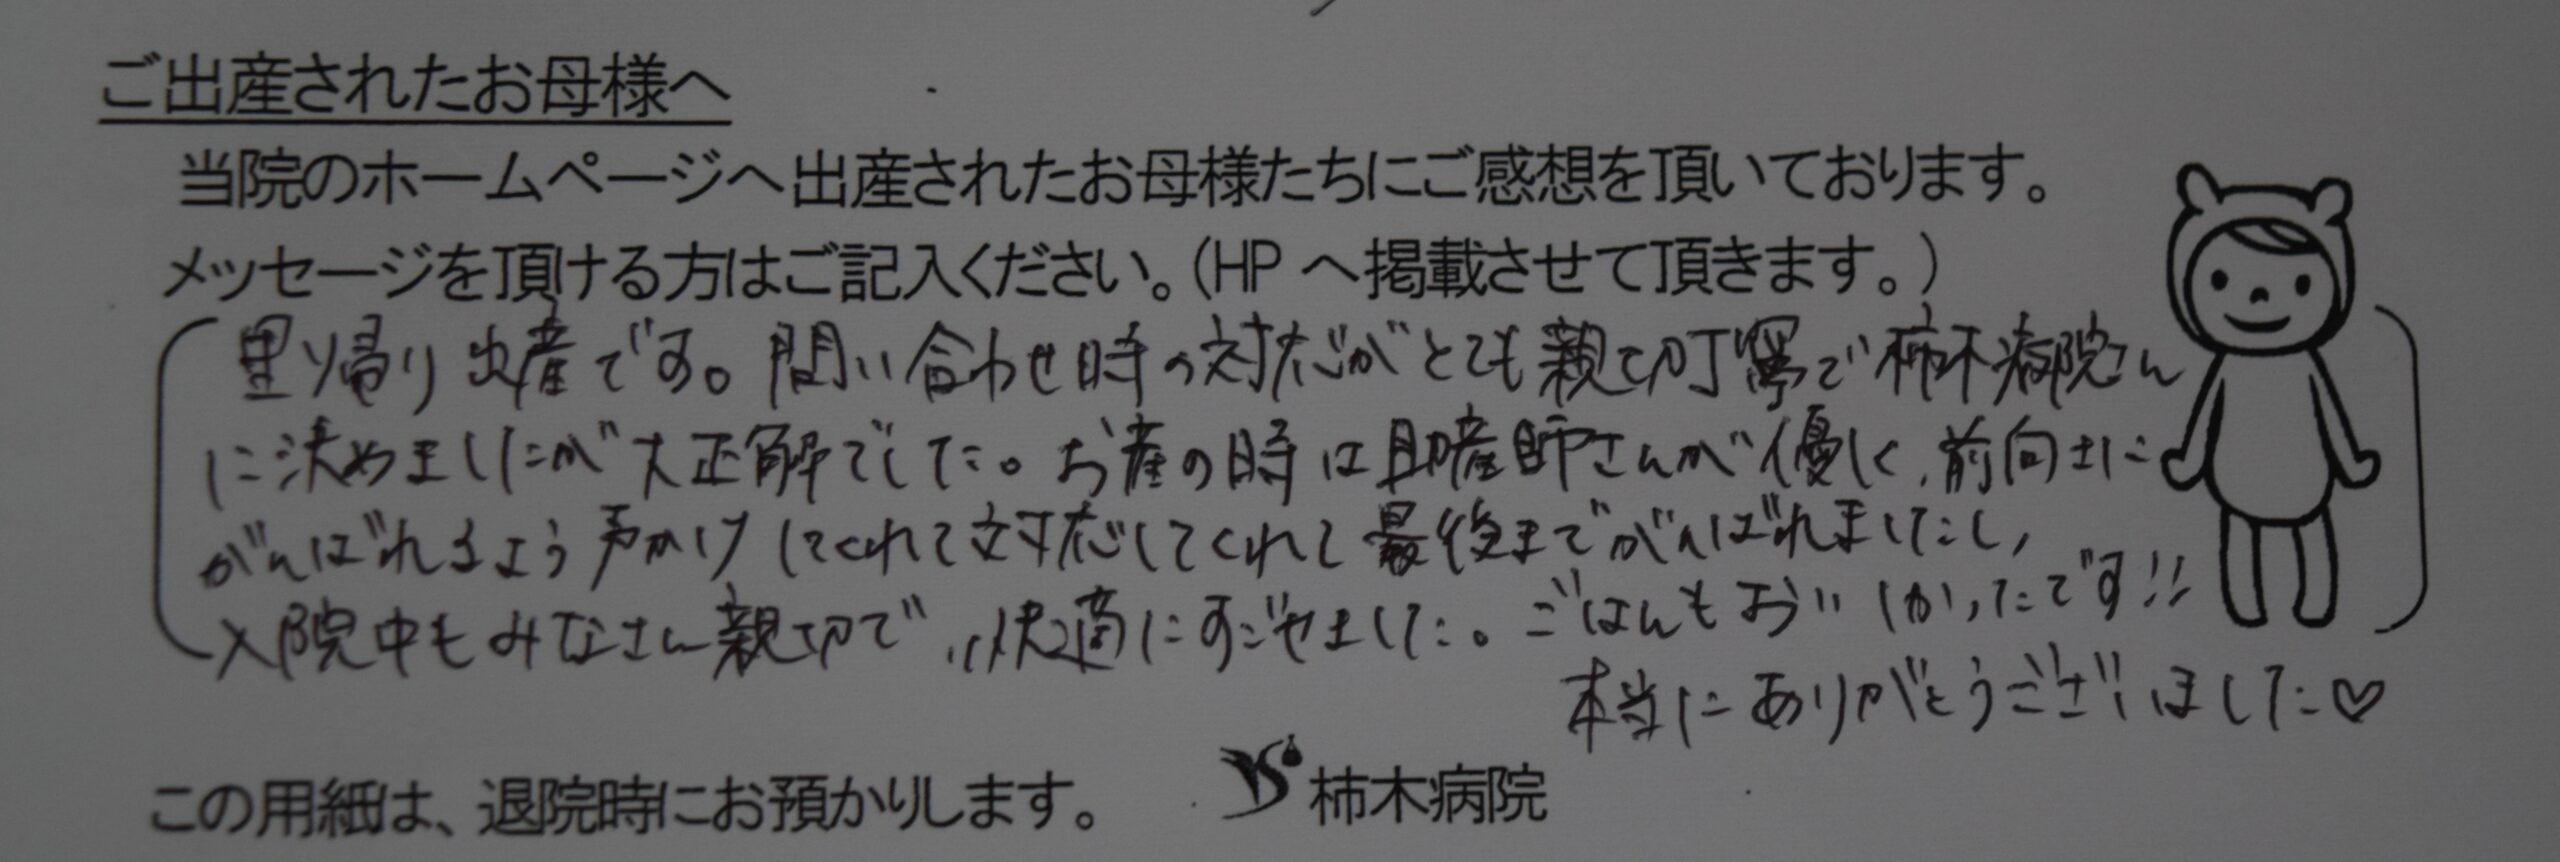 ご出産されたお母様へ
当院のホームページへ出産されたお母様たちにご感想を頂いております。
メッセージを頂ける方はご記入ください。(HP へ掲載させて頂きます。)
里帰り出産です。問い合わせ時の対応がとても親切丁寧で柿木病院さん
に決めましたが大正解でした。お産の時は助産師さんが優しく、前向きに
がんばれるよう声かけしてくれて対応してくれて最後までがんばれましたし、
入院中もみなさん親切で、快適にすごせました。ごはんもおいしかったです!!
本当にありがとうございました♡
この用紙は、退院時にお預かりします。 柿木病院